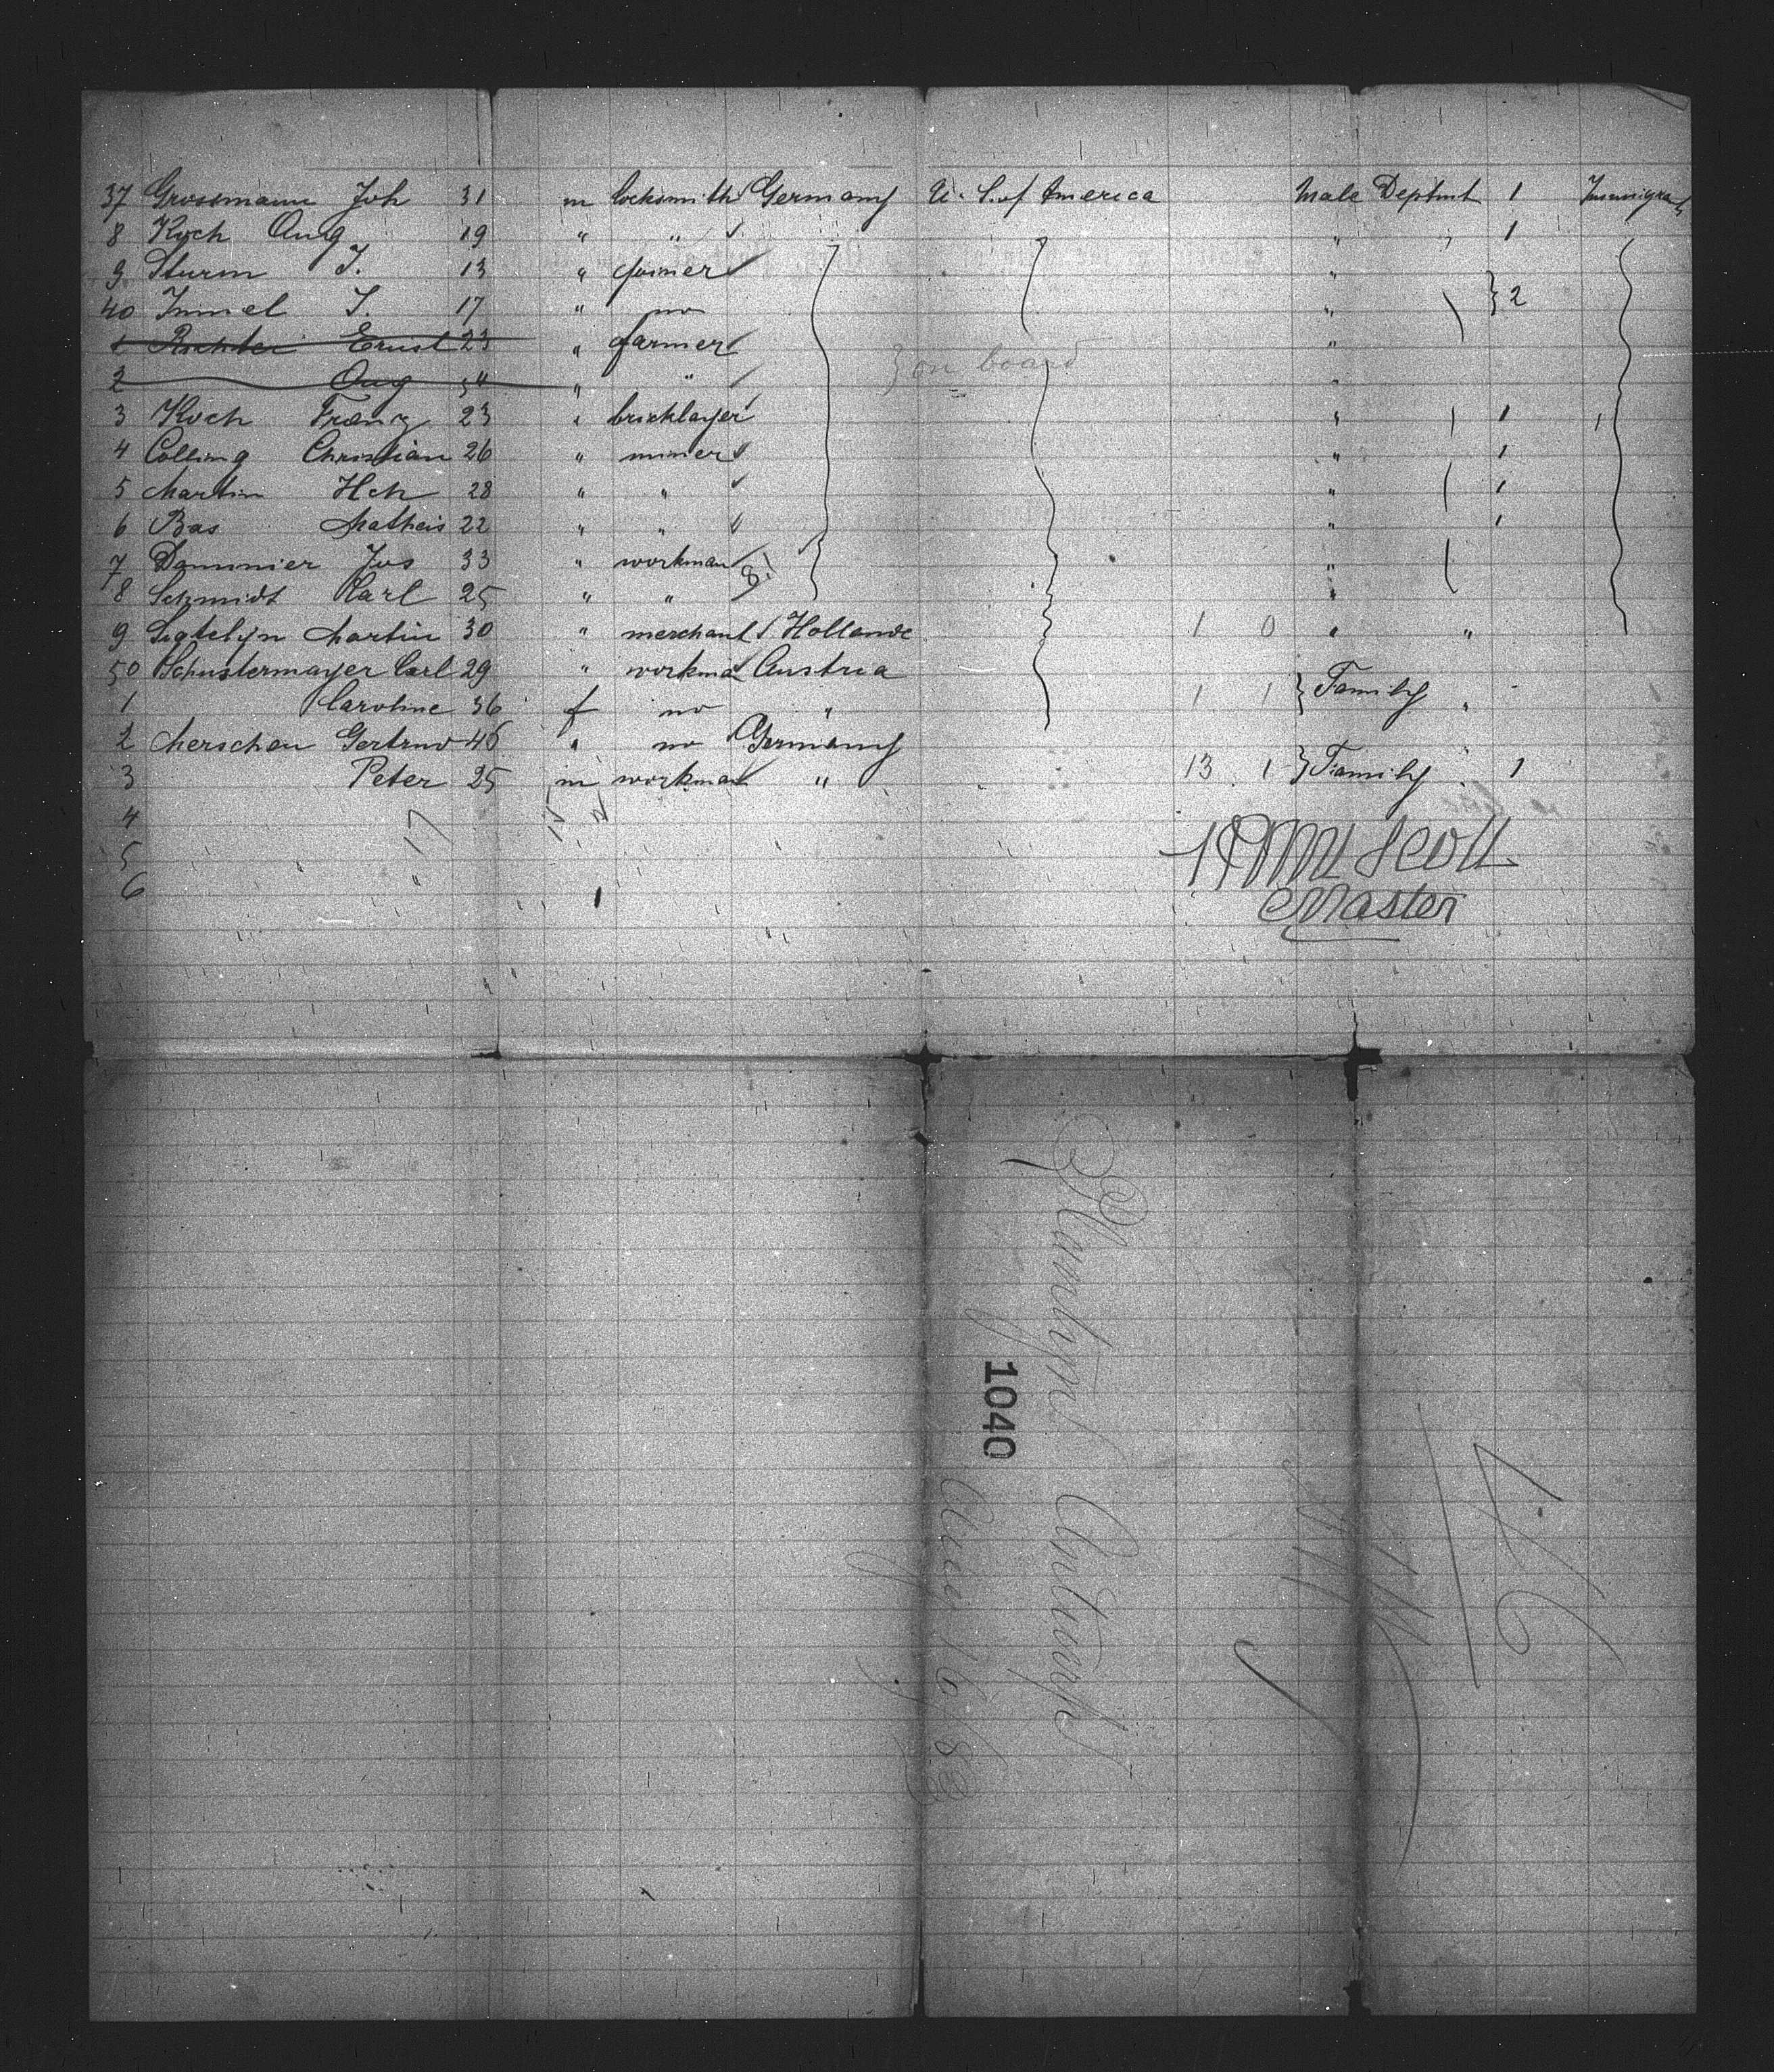 37 Grossmann Joh 31 m locksmith Germany U. S. of America Male Deptmt 1 Immigrant
8 Koch Aug 19 " " " 1
9 Sturm J. 13 " joiner "
40 Immel J. 17 " no " } 2
Ernst 23 " farmer "
2 Aug " " "
} on board
3 Koch Franz 23 " bricklayer " 1
4 Colling Christian 26 " miner " 1
5 Martin Hch 28 " " " 1
6 Bas Matheis 22 " " " 1
7 Dammier Jos 33 " workman "
8 Schmidt Karl 25 " " "
9 Martin 30 " merchant Hollande 1 0 " "
50 Schustermayer Carl 29 " workma Austria
1 Caroline 36 f no " 1 1 } Family "
2 Merschen Gertrud 46 " no Germany
3 Peter 25 m workman " 13 1 } Family " 1
4 17
5
6
Scott
Master
Antwerp
1040
Aug 16/83